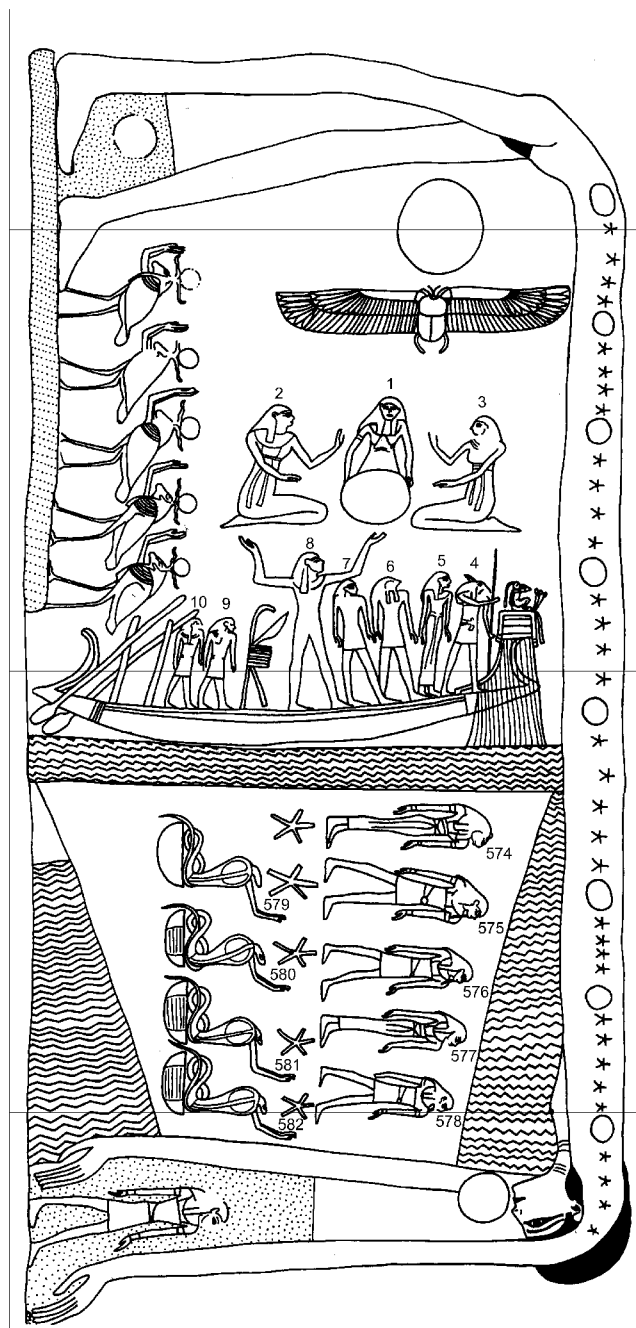 1
2
3
8
7
6
5
4
10
9
574
579
575
580
576
581
577
582
578